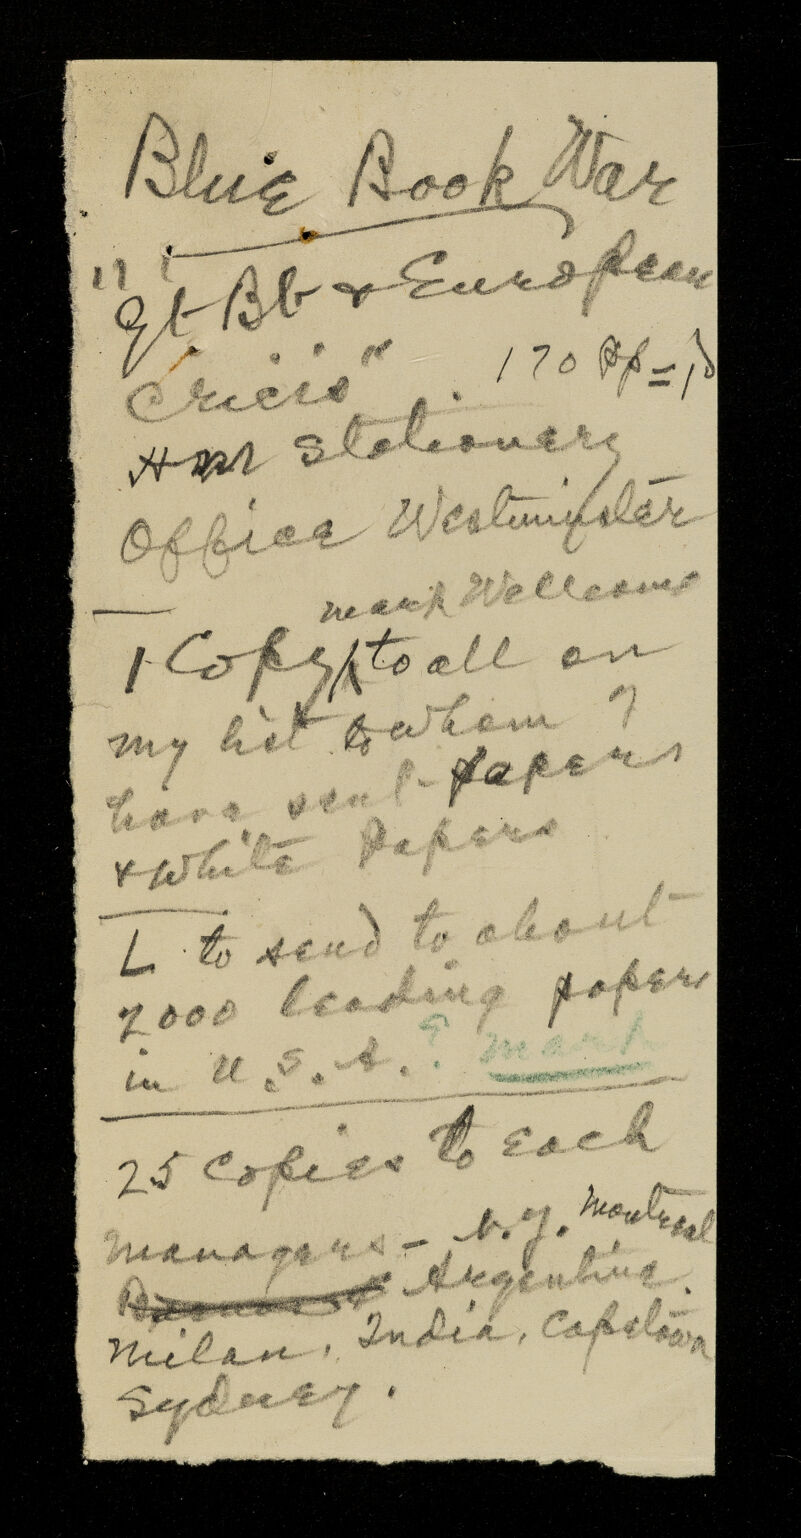 Blue Book War
"Gt Bt & European
Crisis" 170 pp = 1d
HM Stationery
Office Westminster
mark Wellcome
1 Copy ^ to all on
my list to whom I
have sent papers
& White Papers
L to send to about
2000 leading papers
in U.S.A. ? mark
25 Copies to each
managers – N.Y. Montreal
Argentine.
Milan, India, Capetown
Sydney.